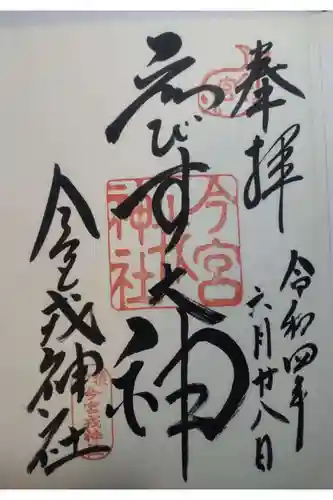 奉拝
令和四年
六月廿八日
ゑびす大神
今宮戎神社
今宮戎神社